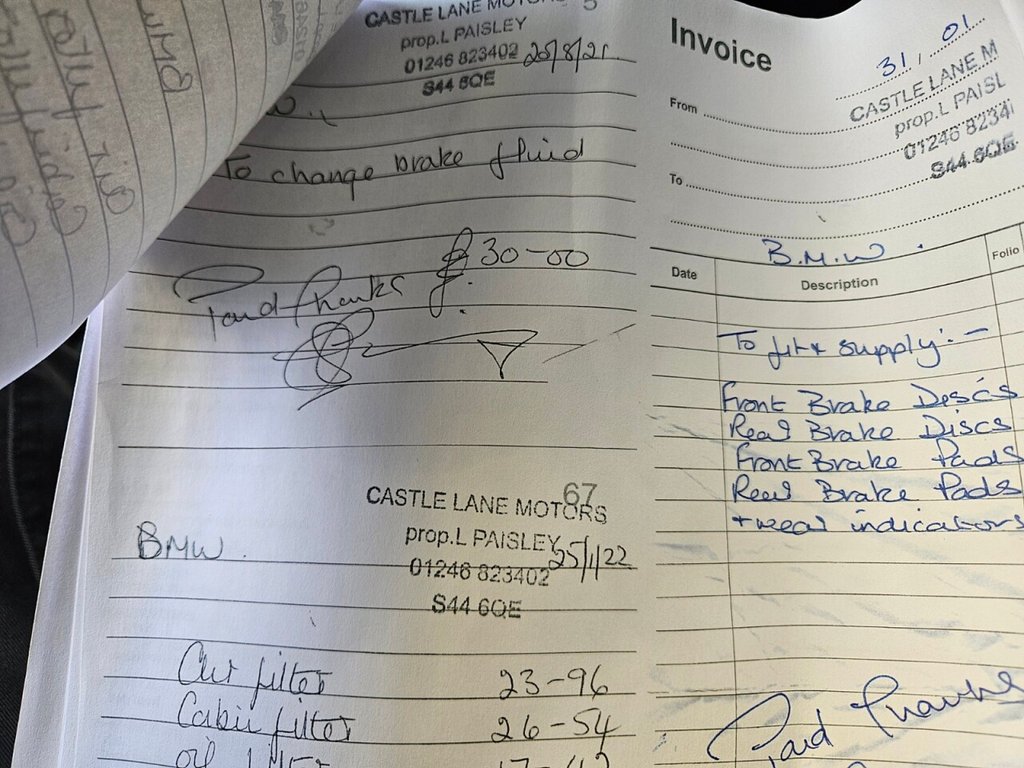 CASTLE LANE MOTORS
prop.L PAISLEY
01246 823402 25/8/21
S44 6QE
To change brake fluid
£30-00
Paid Thanks
67
CASTLE LANE MOTORS
BMW.
prop.L PAISLEY
25/1/22
01246 823402
S44 6QE
Air filter 23-96
Cabin filter 26-54
oil filter
Invoice
31, 01
CASTLE LANE M
From
prop.L PAISL
01246 8234
S44 6QE
To
B.M.W.
Date
Description
Folio
To fit + supply:-
Front Brake Discs
Rear Brake Discs
Front Brake Pads
Rear Brake Pads
+ wear indicators
Paid Thanks